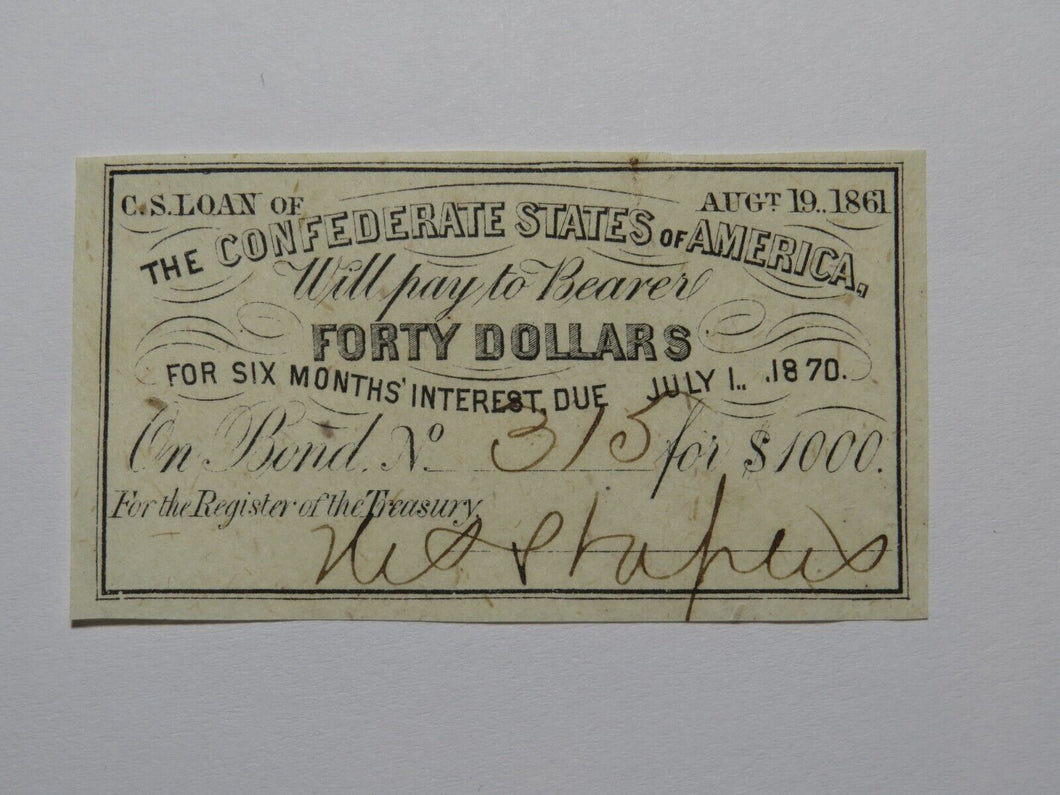 C.S.LOAN OF AUGT 19.. 1861
THE CONFEDERATE STATES OF AMERICA.,
Will pay to Bearer
FORTY DOLLARS
FOR SIX MONTHS' INTEREST, DUE JULY 1.. .1870.
On Bond. No. 315 for $1000.
For the Register of the Treasury,